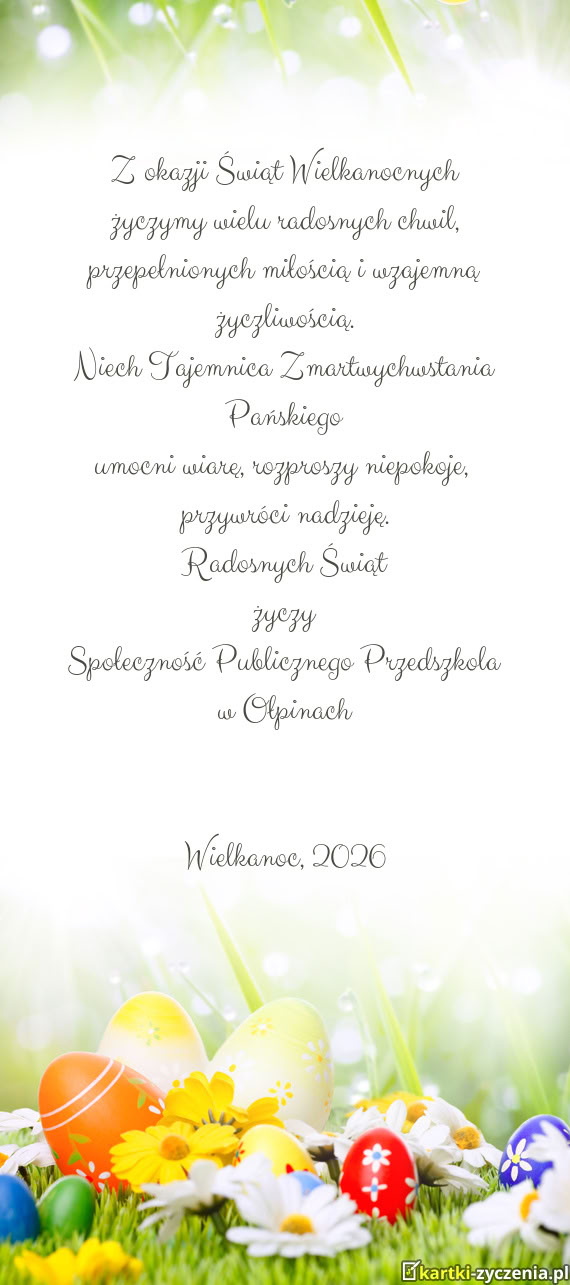 Z okazji Świąt Wielkanocnych
życzymy wielu radosnych chwil,
przepełnionych miłością i wzajemną
życzliwością.
Niech Tajemnica Zmartwychwstania
Pańskiego
umocni wiarę, rozproszy niepokoje,
przywróci nadzieję.
Radosnych Świąt
życzy
Społeczność Publicznego Przedszkola
w Ołpinach
Wielkanoc, 2026
kartki-zyczenia.pl